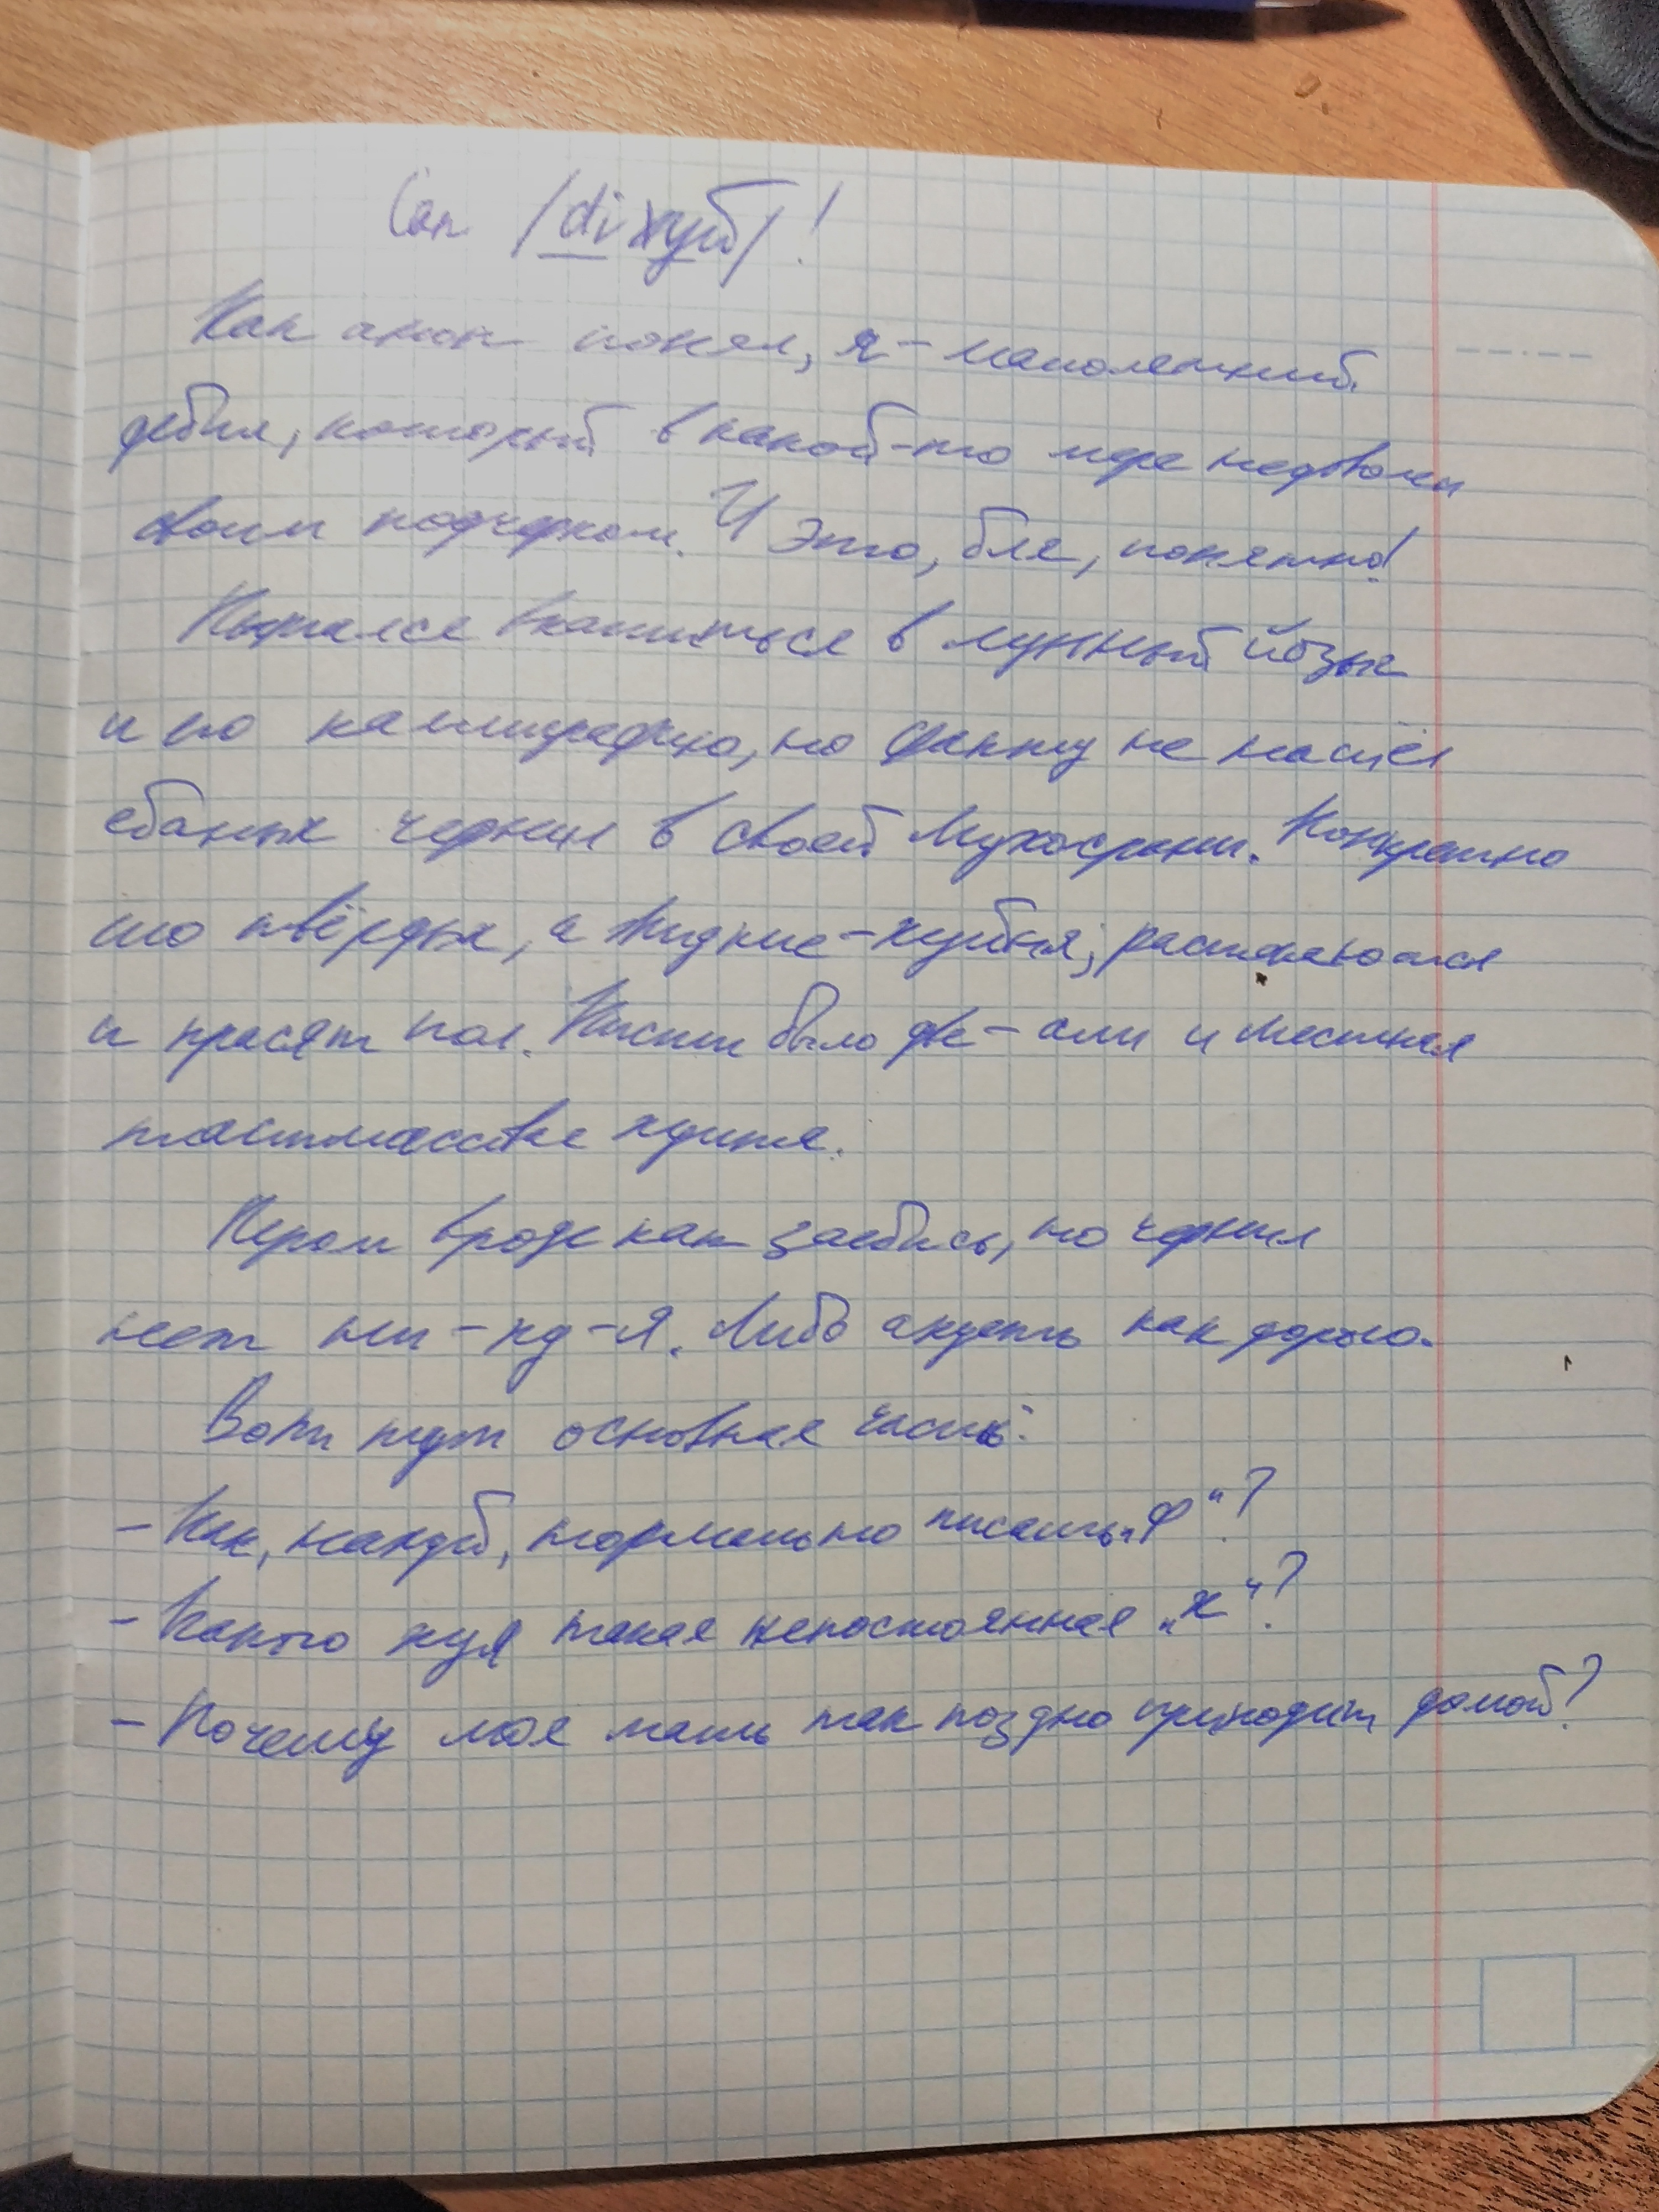 Сап /diхуй/!
Как анон понял, я – малолетний
дебил, который в какой-то мере недоволен
своим подчерком. И это, бля, понятно!
Пытался вкатиться в лунный йазык
и по каллиграфию, но факту не нашёл
ебаных чернил в своей Мухосрани. Конкретно
то твёрдых, а жидкие – хуйня; растекаются
и красят пол. Кисти было две – али и местная
пластмассовае хуита.
Пером вроде как заебись, но чернил
нет ни-ху-я. Либо ахуеть как дорого.
Вопт тут основная часть:
– Как, нахуй, нормально писать „Ф“?
– Какого хуя такая непостоянная „к“?
– Почему моя мать так поздно приходит домой?